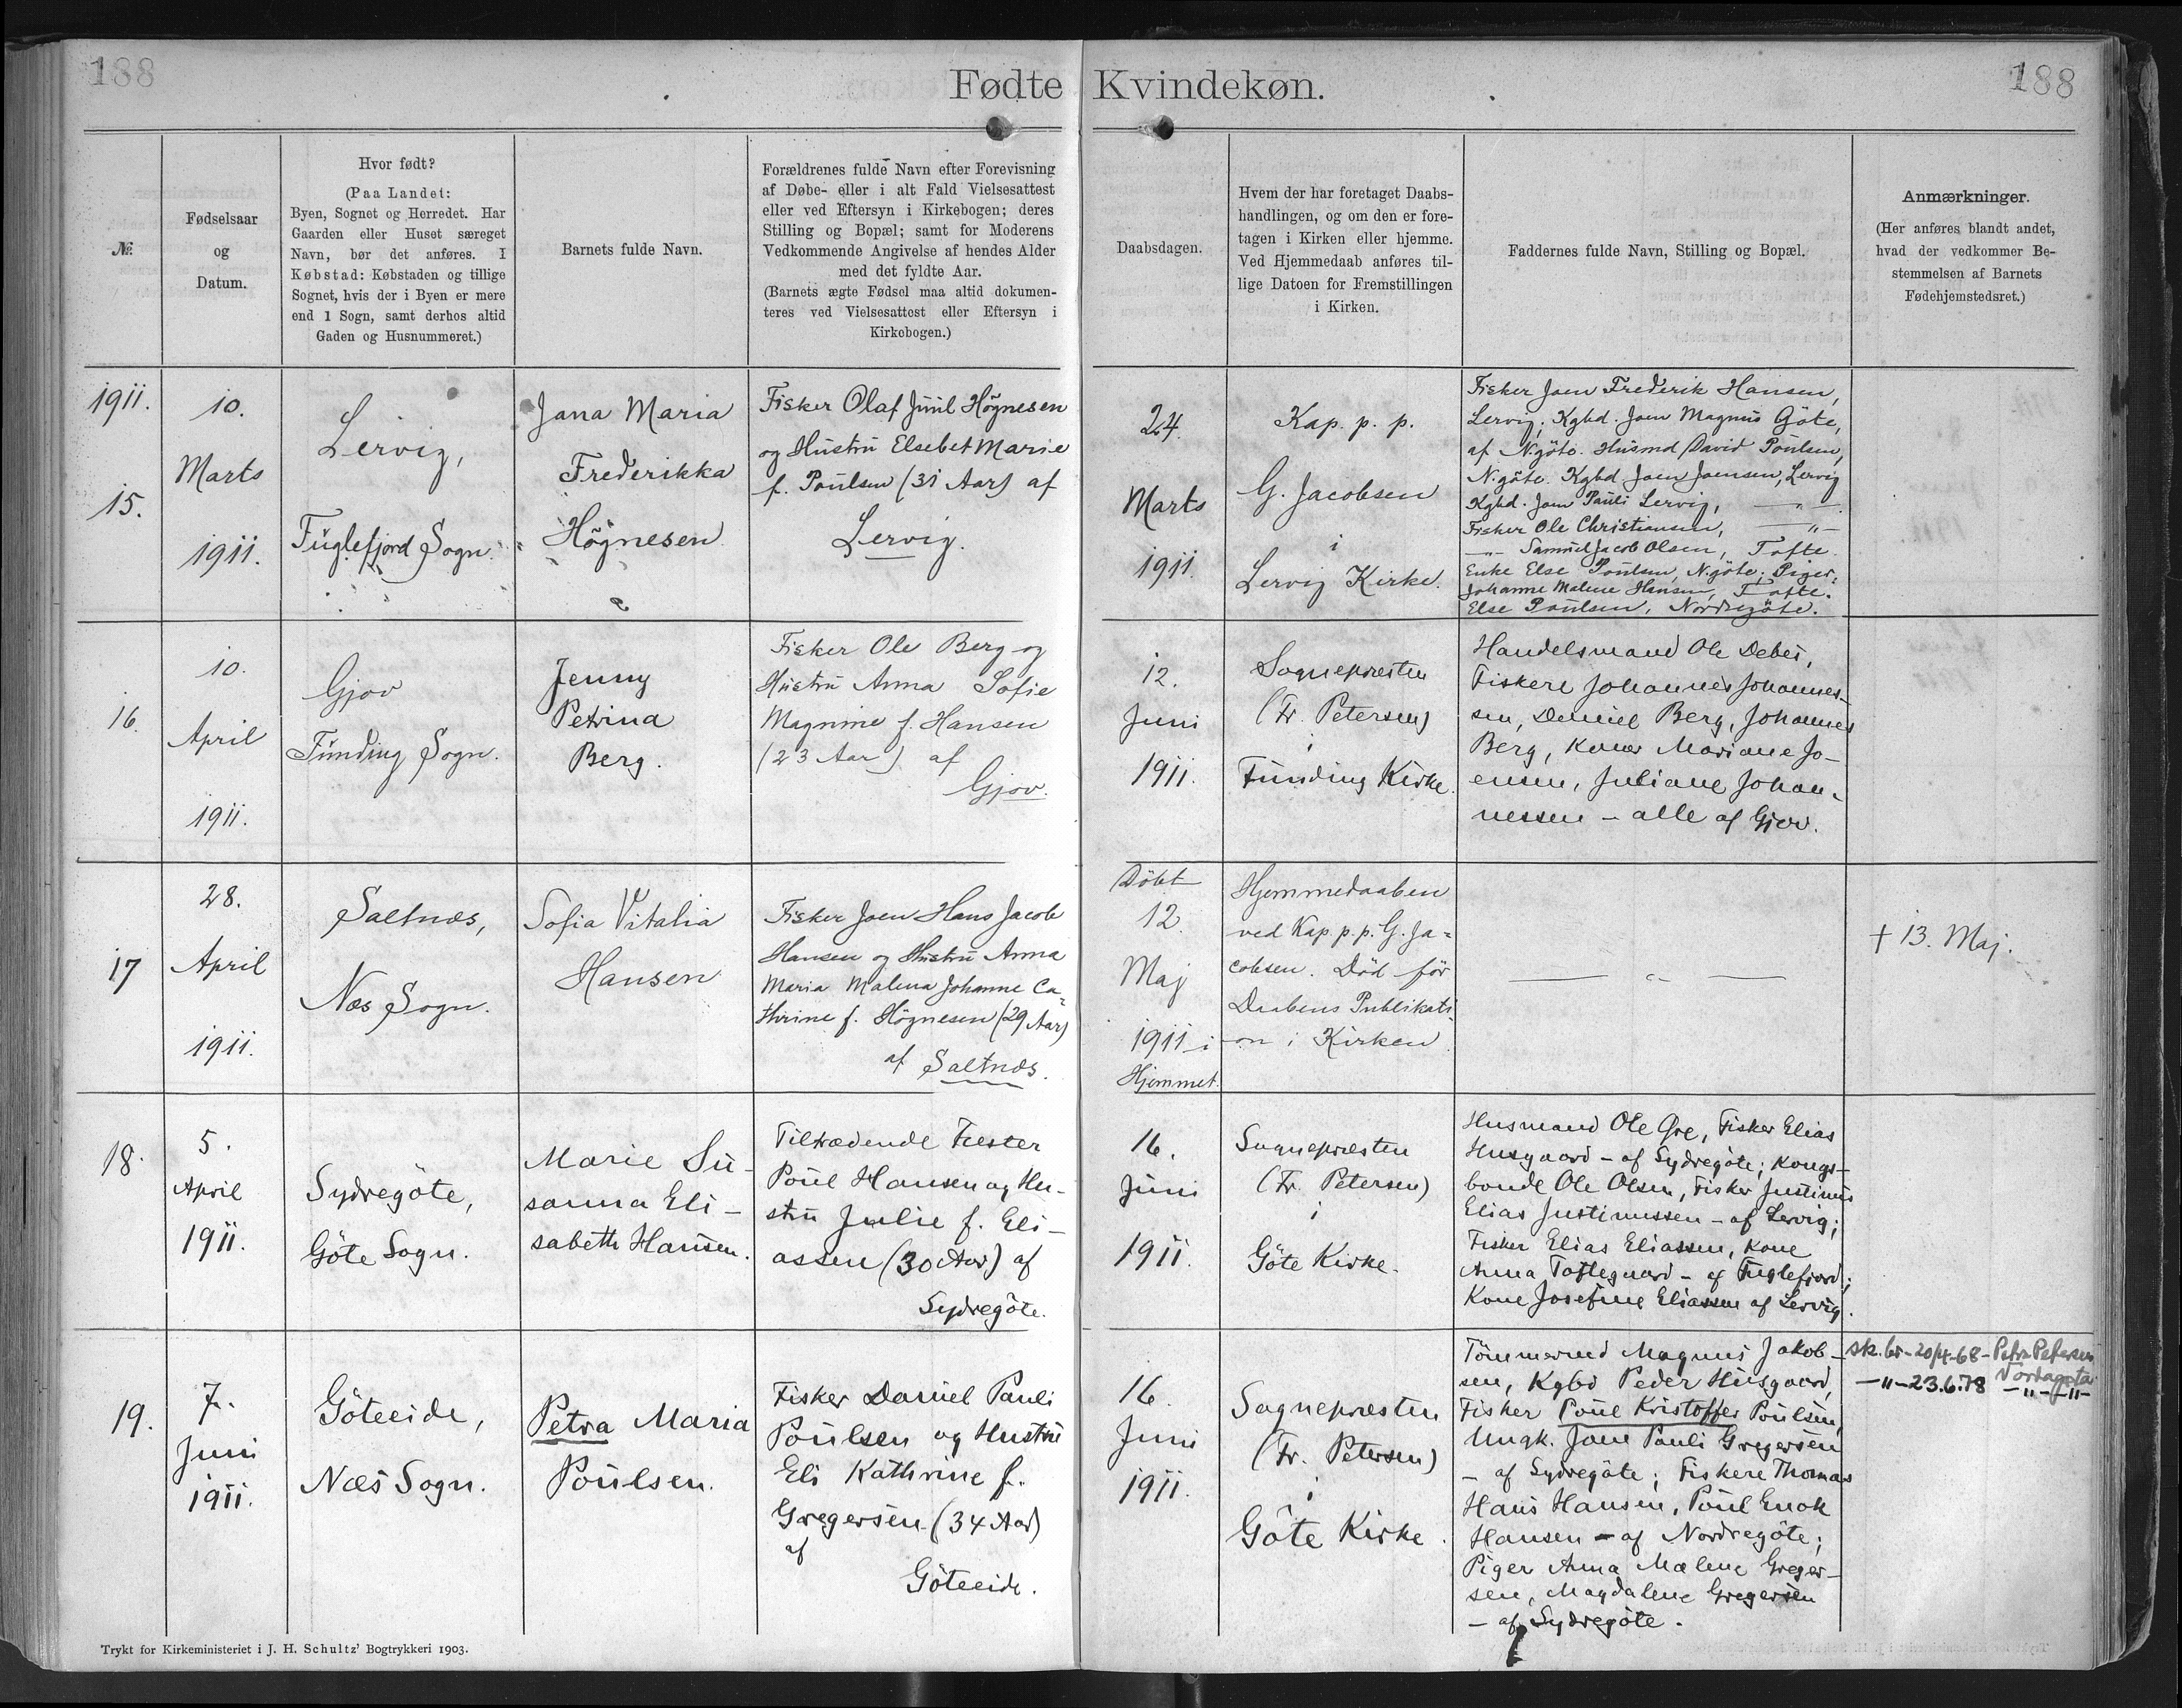 188
Fødte Kvindekøn.
188
№.
Fødselsaar
og
Datum.
Hvor født?
(Paa Landet:
Byen, Sognet og Herredet. Har
Gaarden eller Huset særeget
Navn, bør det anføres. I
Købstad: Købstaden og tillige
Sognet, hvis der i Byen er mere
end 1 Sogn, samt derhos altid
Gaden og Husnummeret.)
Barnets fulde Navn.
Forældrenes fulde Navn efter Forevisning
af Døbe- eller i alt Fald Vielsesattest
eller ved Eftersyn i Kirkebogen; deres
Stilling og Bopæl; samt for Moderens
Vedkommende Angivelse af hendes Alder
med det fyldte Aar.
(Barnets ægte Fødsel maa altid dokumen-
teres ved Vielsesattest eller Eftersyn i
Kirkebogen.)
Daabsdagen.
Hvem der har foretaget Daabs-
handlingen, og om den er fore-
tagen i Kirken eller hjemme.
Ved Hjemmedaab anføres til-
lige Datoen for Fremstillingen
i Kirken.
Faddernes fulde Navn, Stilling og Bopæl.
Anmærkninger.
(Her anføres blandt andet,
hvad der vedkommer Be-
stemmelsen af Barnets
Fødehjemstedsret.)
1911.
15.
10.
Marts
1911.
Lervig,
Fuglefjord Sogn.
Jana Maria
Frederikka
Högnesen
Fisker Olaf Juul Högnesen
og Hustru Elsebet Marie
f. Poulsen (31 Aar) af
Lervig.
24.
Marts
1911.
Kap. p. p.
G. Jacobsen
i
Lervig Kirke.
Fisker Joen Frederik Hansen,
Lervig; Kgbd. Joen Magnus Göte,
af N.göte. Husmd David Poulsen,
N.göte. Kgbd. Joen Joensen, Lervig
Kgbd. Joen Pauli Lervig, — " —.
Fisker Ole Christiansen, — " —
— " — Samuel Jacob Olsen, Tofte.
Enke Else Poulsen, N.göte; Piger:
Johanne Malene Hansen, Tofte.
Else Poulsen, Nordregöte.
16.
10.
April
1911.
Gjov
Funding Sogn.
Jenny
Petrina
Berg.
Fisker Ole Berg og
Hustru Anna Sofie
Magnine f. Hansen
(23 Aar) af
Gjov.
12.
Juni
1911.
Sognepræsten
(Fr. Petersen)
i
Funding Kirke.
Handelsmand Ole Debes,
Fiskere Johannes Johannes-
sen, Daniel Berg, Johannes
Berg, Koner Mariane Jo-
ensen, Juliane Johan-
nessen – alle af Gjov.
17
28.
April
1911.
Saltnæs,
Næs Sogn.
Sofia Vitalia
Hansen
Fisker Joen Hans Jacob
Hansen og Hustru Anna
Maria Malena Johanne Ca-
thrine f. Högnesen (29 Aar)
af Saltnæs.
Döbt
12.
Maj
1911 i
Hjemmet.
Hjemmedaaben
ved Kap. p. p. G. Ja-
cobsen. Död för
Daabens Publikati-
on i Kirken
— " —
† 13. Maj.
18.
5.
April
1911.
Sydregöte,
Göte Sogn.
Marie Su-
sanna Eli-
sabeth Hansen.
Tiltrædende Fæster
Poul Hansen og Hu-
stru Julie f. Eli-
assen (30 Aar) af
Sydregöte.
16.
Juni
1911.
Sognepræsten
(Fr. Petersen)
i
Göte Kirke.
Husmand Ole Gre, Fisker Elias
Husgaard – af Sydregöte; Kongs-
bonde Ole Olsen, Fisker Justinus
Elias Justinussen – af Lervig;
Fisker Elias Eliassen, Kone
Anna Toftegaard – af Fuglefjord;
Kone Josefine Eliassen af Lervig.
19.
7.
Juni
1911.
Göteeide,
Næs Sogn.
Petra Maria
Poulsen.
Fisker Daniel Pauli
Poulsen og Hustru
Eli Kathrine f.
Gregersen (34 Aar)
af
Göteeide.
16.
Juni
1911.
Sognepræsten
(Fr. Petersen)
i
Göte Kirke.
Tömmermd Magnus Jakob-
sen, Kgbd Peder Husgaard,
Fisker Poul Kristoffer Poulsen,
Ungk. Joen Pauli Gregersen
– af Sydregöte; Fiskere Thomas
Hans Hansen, Poul Enok
Hansen – af Nordregöte;
Piger Anna Malene Greger-
sen, Magdalene Gregersen
– af Sydregöte.
sk. br – 20/4-68 – Petra Petersen
Nordagøta
— " — 23.6.78 — " — " —
Trykt for Kirkeministeriet i J. H. Schultz' Bogtrykkeri 1903.